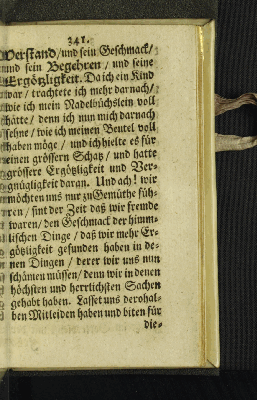 341.
Verstand / und sein Geschmack /
und sein Begehren / und seine
Ergötzligkeit. Da ich ein Kind
war / trachtete ich mehr darnach /
wie ich mein Nadelbüchslein voll
hätte / denn ich nun mich darnach
sehne / wie ich meinen Beutel voll
haben möge / und ich hielte es für
einen grössern Schatz / und hatte
grössere Ergötzligkeit und Ver-
gnügligkeit daran. Und ach! wir
möchten uns nur zu Gemüthe füh-
ren / sint der Zeit daß wir fremde
waren / den Geschmack der himm-
lischen Dinge / daß wir mehr Er-
götzligkeit gefunden haben in de-
nen Dingen / derer wir uns nun
schämen müssen / denn wir in denen
höchsten und herrlichsten Sachen
gehabt haben. Lasset uns derohal-
ben Mitleiden haben und biten für
die-